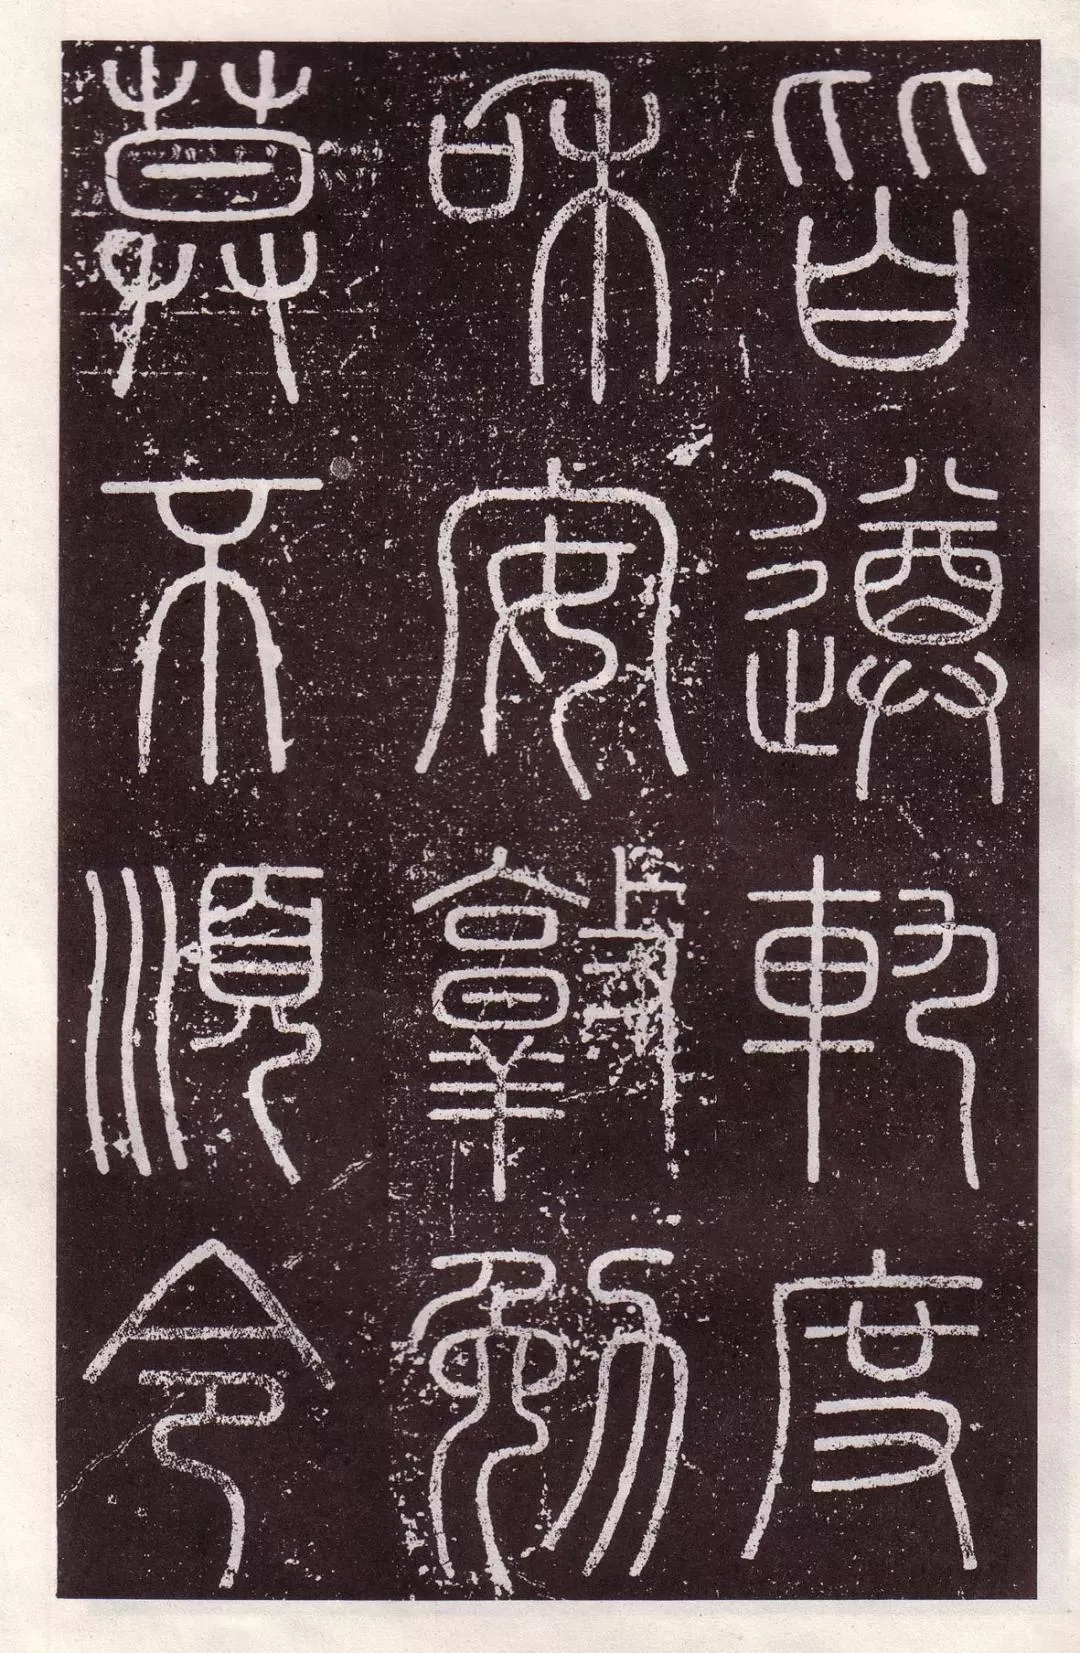 皆遵軌度
和安敦勉
莫不順令